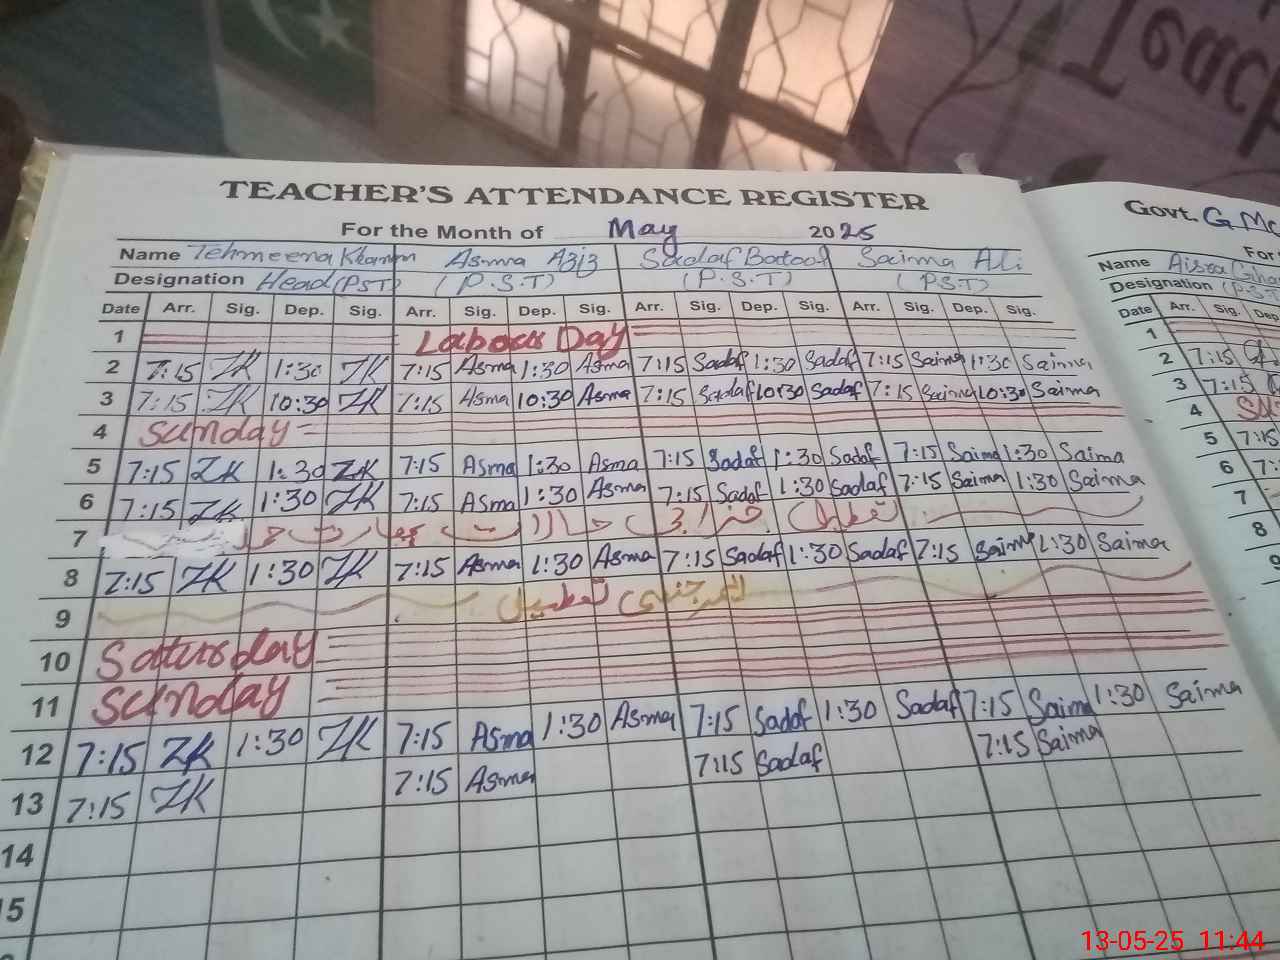 Teach
TEACHER'S ATTENDANCE REGISTER
For the Month of May 2025
Name Tehmeena Khanam Asma Aziz Sadaf Batool Saima Ali
Designation Head (PST) (P.S.T) (P.S.T) (P.S.T)
Date Arr. Sig. Dep. Sig. Arr. Sig. Dep. Sig. Arr. Sig. Dep. Sig. Arr. Sig. Dep. Sig.
1 Labour Day
2 7:15 TK 1:30 TK 7:15 Asma 1:30 Asma 7:15 Sadaf 1:30 Sadaf 7:15 Saima 1:30 Saima
3 7:15 TK 10:30 TK 7:15 Asma 10:30 Asma 7:15 Sadaf 10:30 Sadaf 7:15 Saima 10:30 Saima
4 Sunday
5 7:15 TK 1:30 TK 7:15 Asma 1:30 Asma 7:15 Sadaf 1:30 Sadaf 7:15 Saima 1:30 Saima
6 7:15 TK 1:30 TK 7:15 Asma 1:30 Asma 7:15 Sadaf 1:30 Sadaf 7:15 Saima 1:30 Saima
7 تعطیل
8 7:15 TK 1:30 TK 7:15 Asma 1:30 Asma 7:15 Sadaf 1:30 Sadaf 7:15 Saima 1:30 Saima
9 ایمرجنسی تعطیل
10 Saturday
11 Sunday
12 7:15 TK 1:30 TK 7:15 Asma 1:30 Asma 7:15 Sadaf 1:30 Sadaf 7:15 Saima 1:30 Saima
13 7:15 TK 7:15 Asma 7:15 Sadaf 7:15 Saima
14
15
Govt. G.
For
Name
Designation (P.S.T
Date Arr. Sig. Dep
1
2 7:15
3 7:15
4
5 7:15
6
7
8
9
13-05-25 11:44